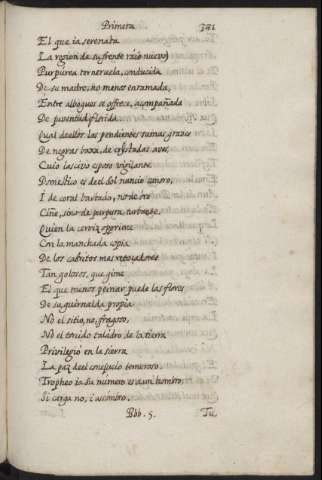 Primera 341
El que ia serenata
La region de su frente raio nuevo)
Purpurea terneruela, conducida
De su madre, no menos enramada,
Entre albogues se offrece, acompañada
De juventud florida
Qual dellos las pendientes sumas graves
De negras baxa, de crestadas aves,
Cuio lascivo esposo vigilante
Domestico es del Sol nuncio canoro,
I de coral barbado, no de oro
Ciñe, sino de purpura turbante,
Quien la cerviz opprime
Con la manchada copia
De los cabritos mas retoçadores
Tan golosos, que gime
El que menos peinar puede las flores
De su guirnalda propia
No el sitio, no, fragoso,
No el torcido taladro de la tierra
Privilegiò en la sierra
La paz del conejuelo temeroso.
Tropheo ia su numero es a un hombro,
Si carga no, i asombro.
Bbb. 5. Tu